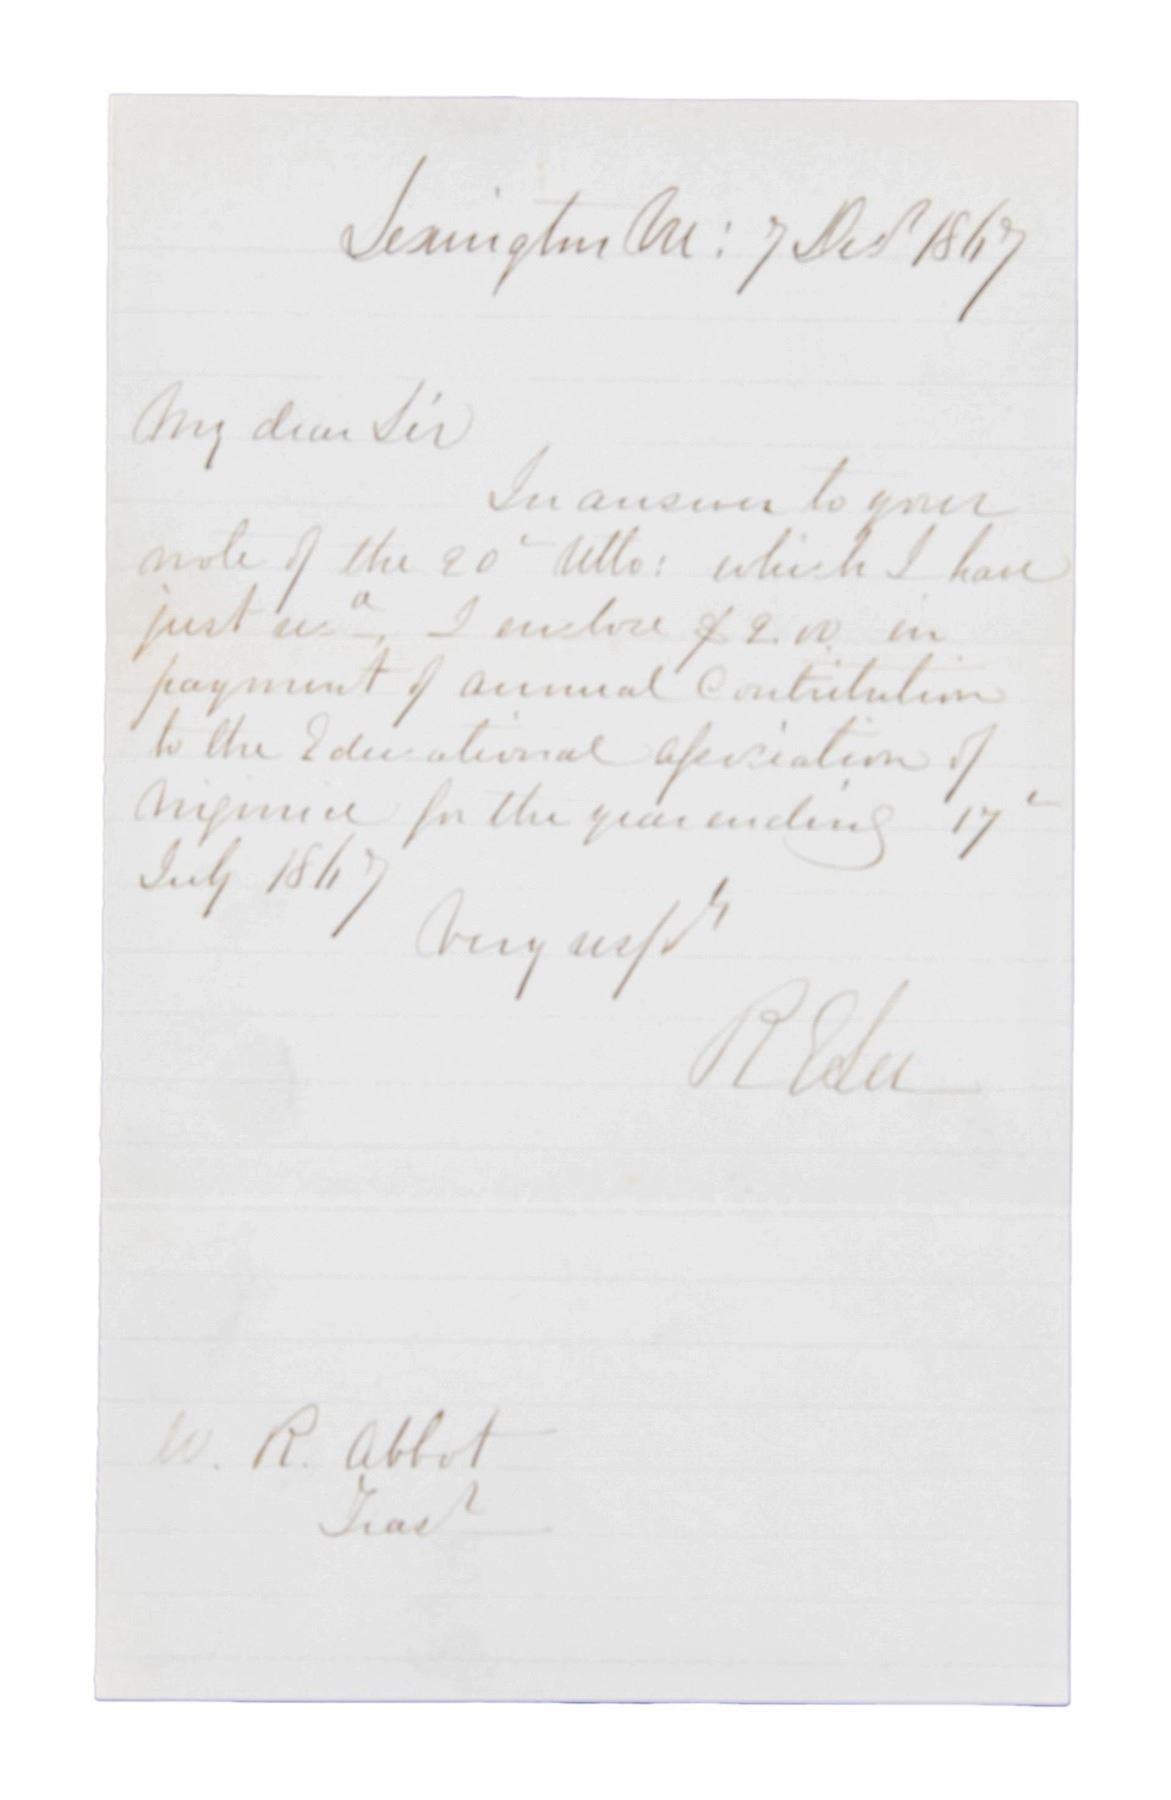 Lexington Va: 7 Decr 1867
My dear Sir
In answer to your
note of the 20th Ulto: which I have
just recd, I enclose $2.00 in
payment of annual Contribution
to the Educational Association of
Virginia for the year ending 17th
July 1867
Very respty
R E Lee
W. R. Abbot
Treasr